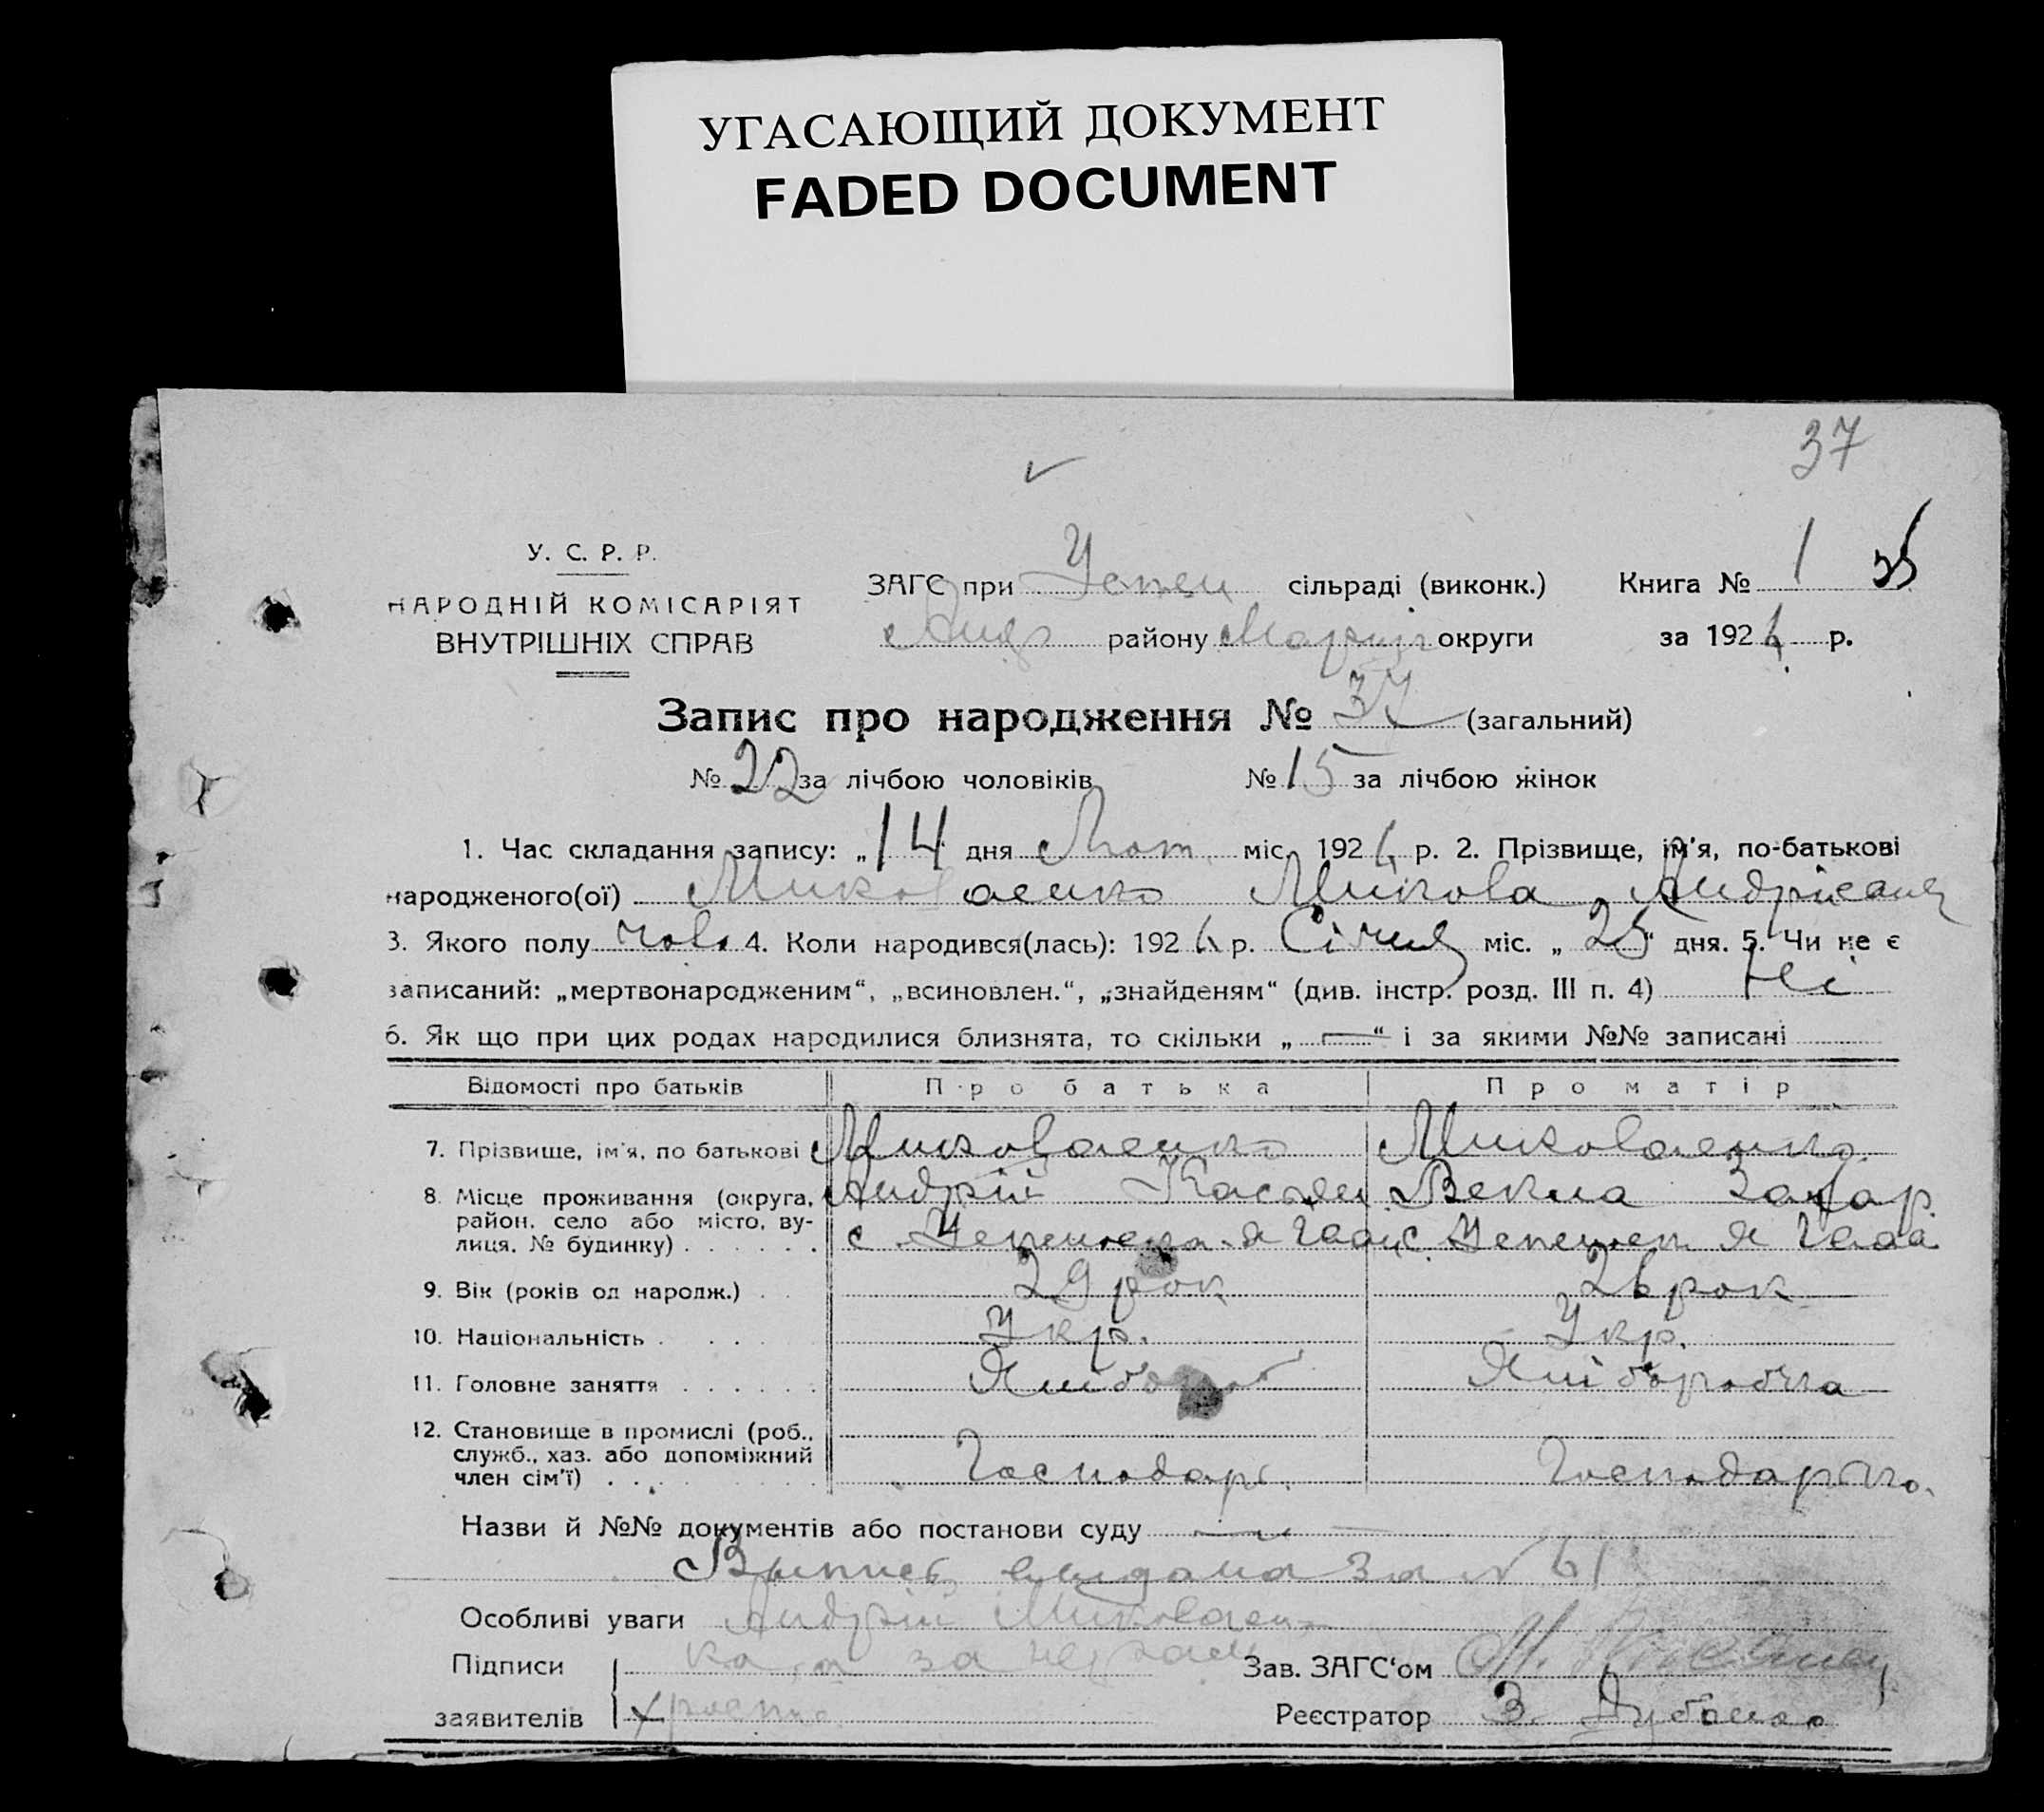 УГАСАЮЩИЙ ДОКУМЕНТ
FADED DOCUMENT
37
У. С. Р. Р.
НАРОДНІЙ КОМІСАРІЯТ
ВНУТРІШНІХ СПРАВ
ЗАГС при Успен сільраді (виконк.) Книга № 1
району Маріуп округи за 1926 р.
Запис про народження № 37 (загальний)
№ 22 за лічбою чоловіків № 15 за лічбою жінок
1. Час складання запису: „14 дня Лют. міс. 1926 р. 2. Прізвище, ім'я, по-батькові
народженого(ої) Миколаенко Микола Андрієвич
3. Якого полу чол. 4. Коли народився(лась): 1926 р. Січня міс. „25“ дня. 5. Чи не є
записаний: „мертвонародженим“, „всиновлен.“, „знайденям“ (див. інстр. розд. III п. 4) Ні
6. Як що при цих родах народилися близнята, то скільки „—“ і за якими №№ записані
Відомості про батьків Про батька Про матір
7. Прізвище, ім'я, по батькові Миколаенко Миколаенко
8. Місце проживання (округа, район, село або місто, вулиця, № будинку) Андрій Касьян Векла Захар.
с. Успеновка с. Успеновк
9. Вік (років од народж.) 29 рок 26 рок
10. Національність Укр. Укр.
11. Головне заняття Хліборов Хліборобка
12. Становище в промислі (роб., служб., хаз. або допоміжний член сім'ї) Господарь. Господарька.
Назви й №№ документів або постанови суду —
Выпись видана за № 61
Особливі уваги Андрій Миколаен-
Підписи ка, а за Зав. ЗАГС'ом М.
заявителів Реєстратор З. Дубенко